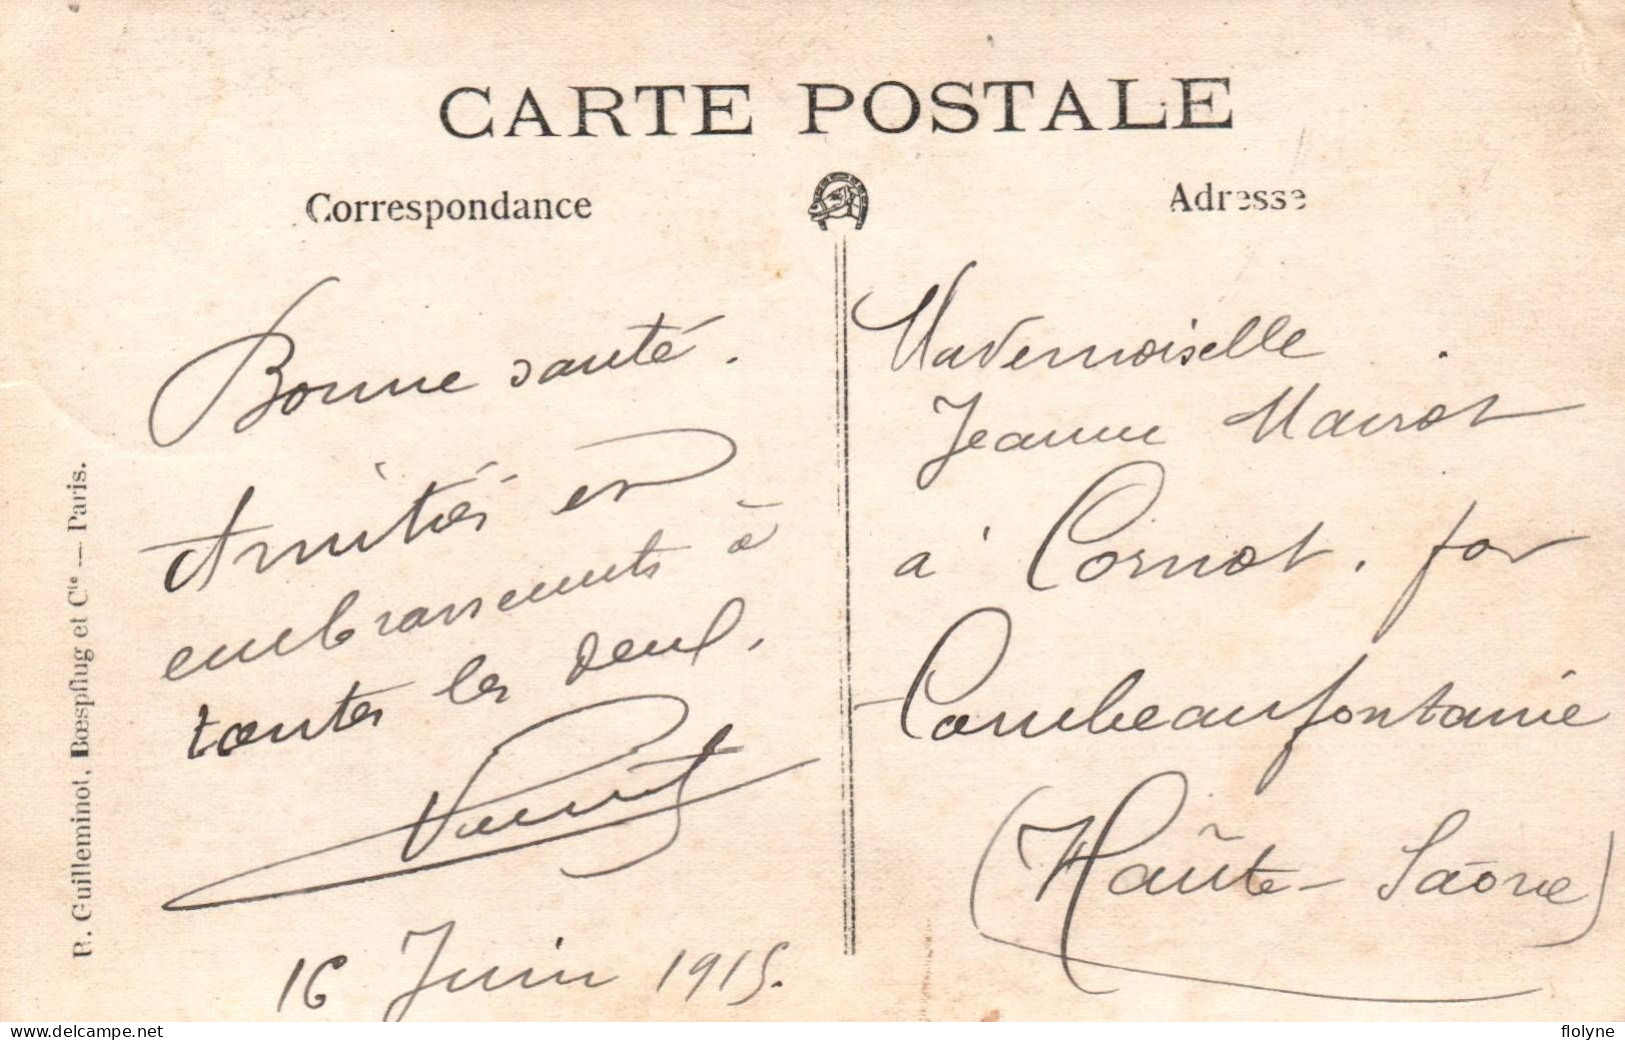 CARTE POSTALE
Correspondance
Adresse
Bonne santé.
Amitiés et
embrassements à
toutes les deux.
16 Juin 1915.
Mademoiselle
Jeanne Mairot
à Cornot. par
Combeaufontaine
(Haûte-Saône)
R. Guilleminot, Bœspflug et Cie — Paris.
delcampe.net
flolyne